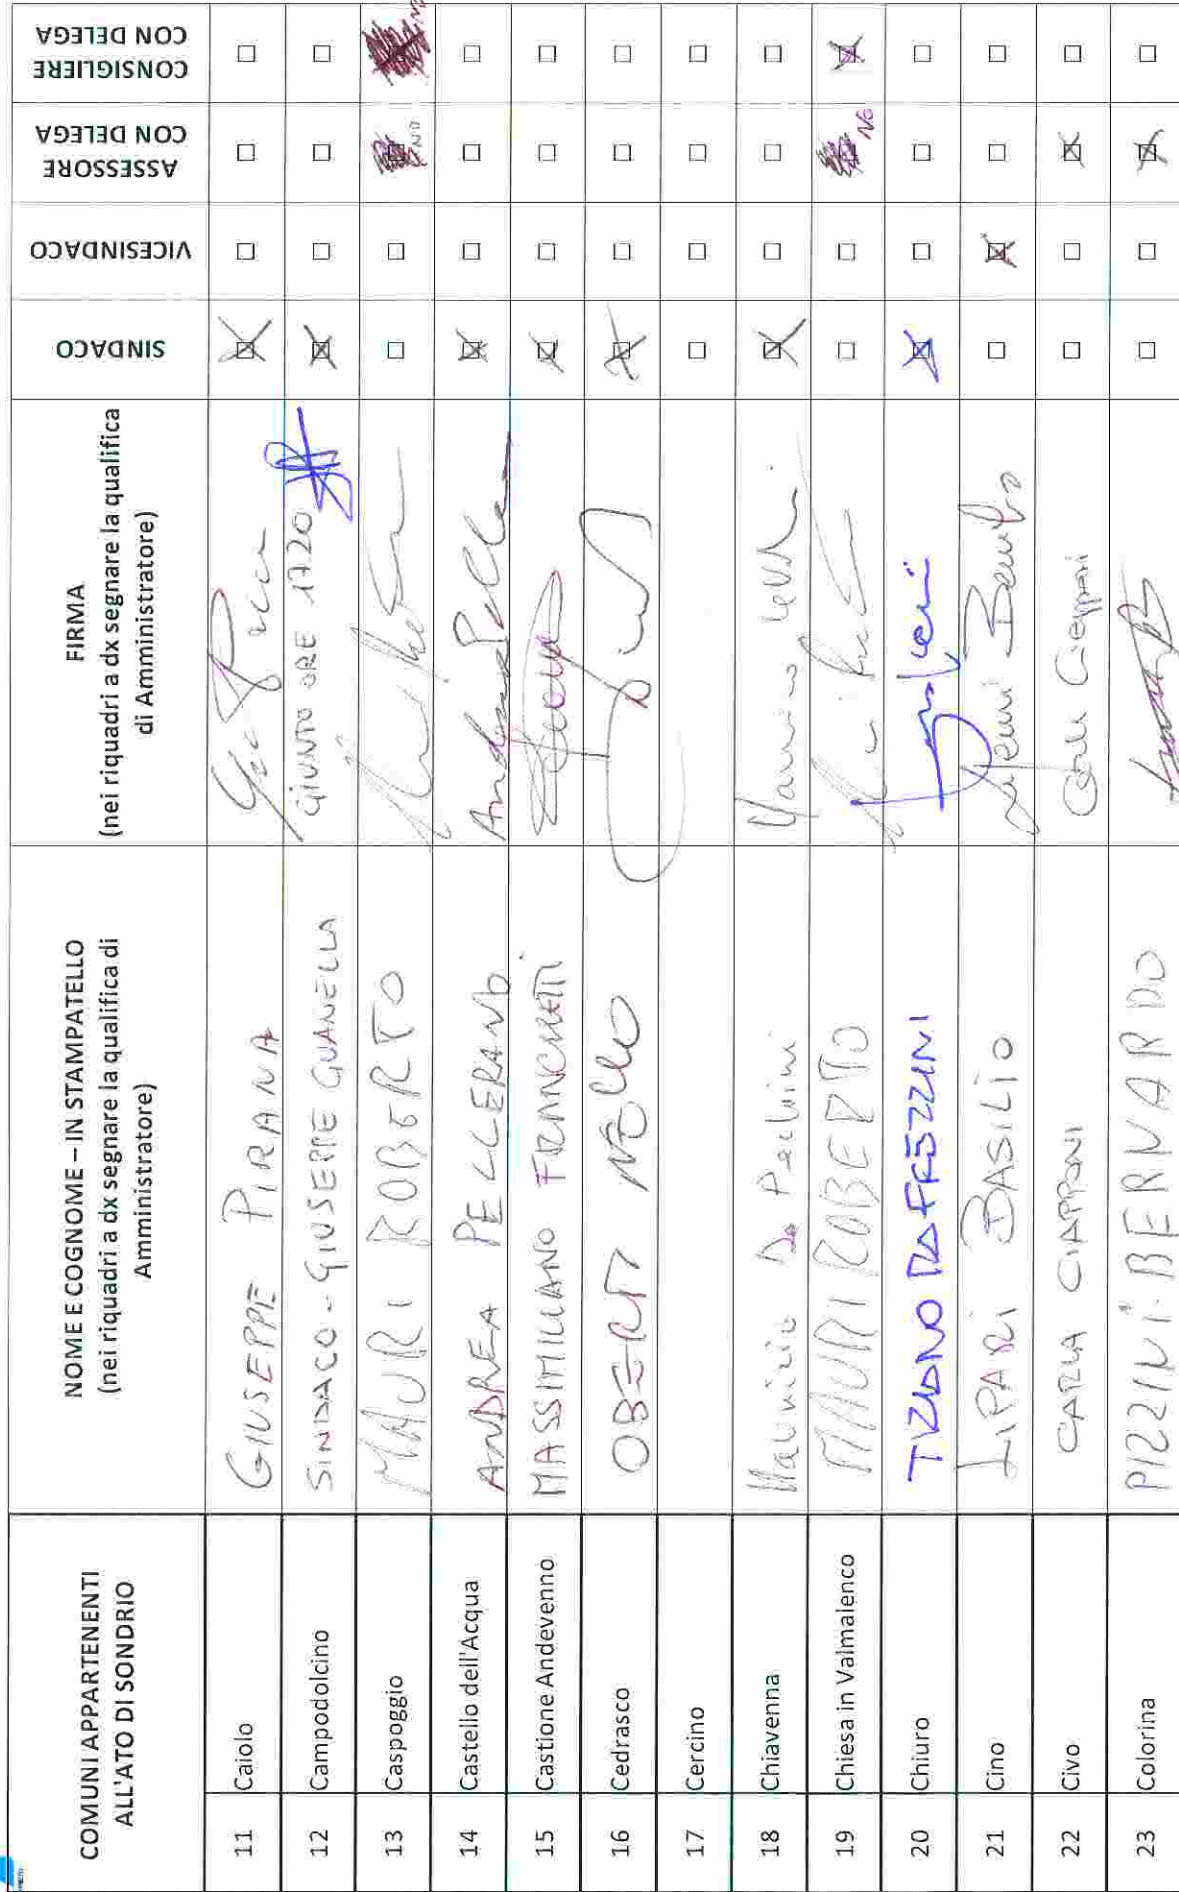 COMUNI APPARTENENTI
ALL'ATO DI SONDRIO
NOME E COGNOME – IN STAMPATELLO
(nei riquadri a dx segnare la qualifica di
Amministratore)
FIRMA
(nei riquadri a dx segnare la qualifica
di Amministratore)
SINDACO
VICESINDACO
ASSESSORE
CON DELEGA
CONSIGLIERE
CON DELEGA
11 Caiolo GIUSEPPE PIRANA
12 Campodolcino SINDACO - GIUSEPPE GUANELLA GIUNTO ORE 17.20
13 Caspoggio MAURI ROBERTO NO NO
14 Castello dell'Acqua ANDREA PELLERANO
15 Castione Andevenno MASSIMILIANO FRANCHETTI
16 Cedrasco OBERTI NELLO
17 Cercino
18 Chiavenna Maurizio De Pedrini
19 Chiesa in Valmalenco MAURI ROBERTO NO
20 Chiuro TIZIANO MAFFEZZINI
21 Cino LIPARI BASILIO
22 Civo CARLA CIAPPONI Carla Ciapponi
23 Colorina PIZZINI BERNARDO